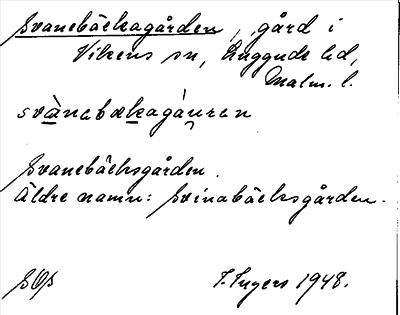 Svanebäckagården, gård i
Vikens sn, Luggude hd,
Malm. l.
svànabækagàuren
Svanebäcksgården.
Äldre namn: Svinabäcksgården.
I. Ingers 1948.